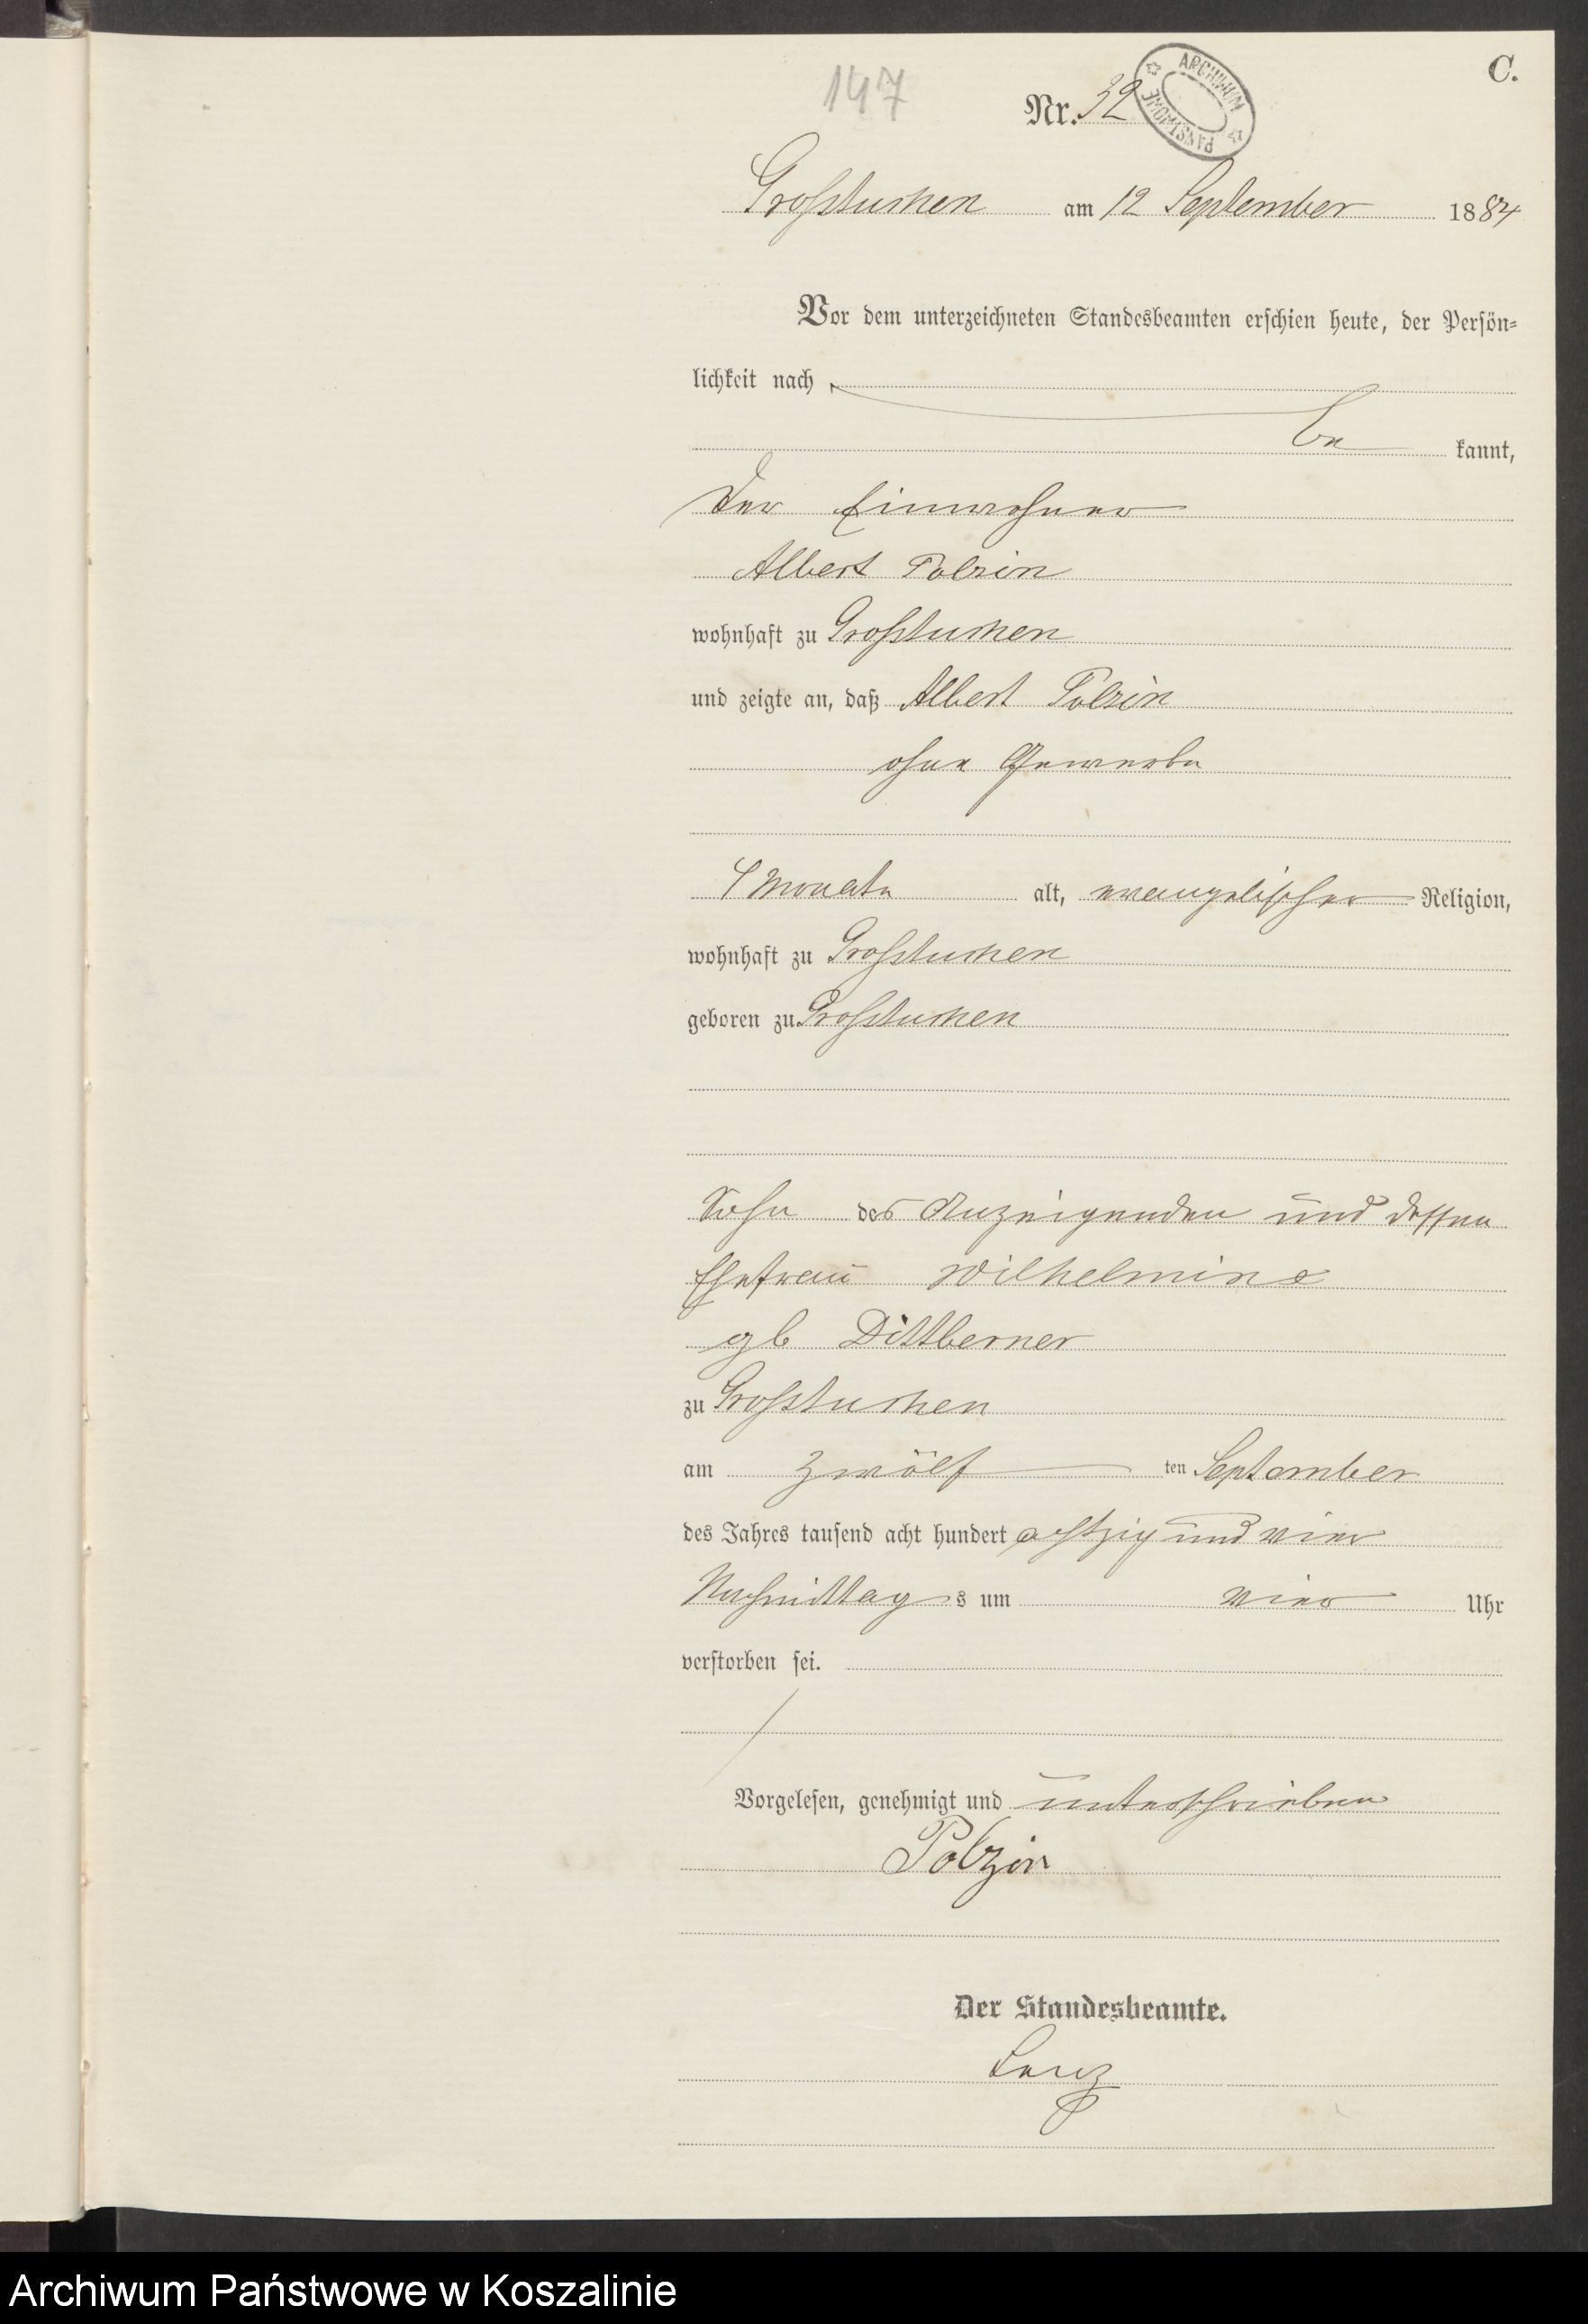 C.
147
Nr. 32
ARCHIWUM PAŃSTWOWE
Grosstuchen am 12 September 1884
Vor dem unterzeichneten Standesbeamten erschien heute, der Persön-
lichkeit nach
be kannt,
der Einwohner
Albert Polzin
wohnhaft zu Grosstuchen
und zeigte an, daß Albert Polzin
ohne Gewerbe
Monate alt, evangelischer Religion,
wohnhaft zu Grosstuchen
geboren zu Grosstuchen
Sohn des Anzeigenden und dessen
Ehefrau Wilhelmine
gb Dittberner
zu Grosstuchen
am zwölf ten September
des Jahres tausend acht hundert achtzig und vier
Nachmittag s um vier Uhr
verstorben sei.
Vorgelesen, genehmigt und unterschrieben
Polzin
Der Standesbeamte.
Archiwum Państwowe w Koszalinie